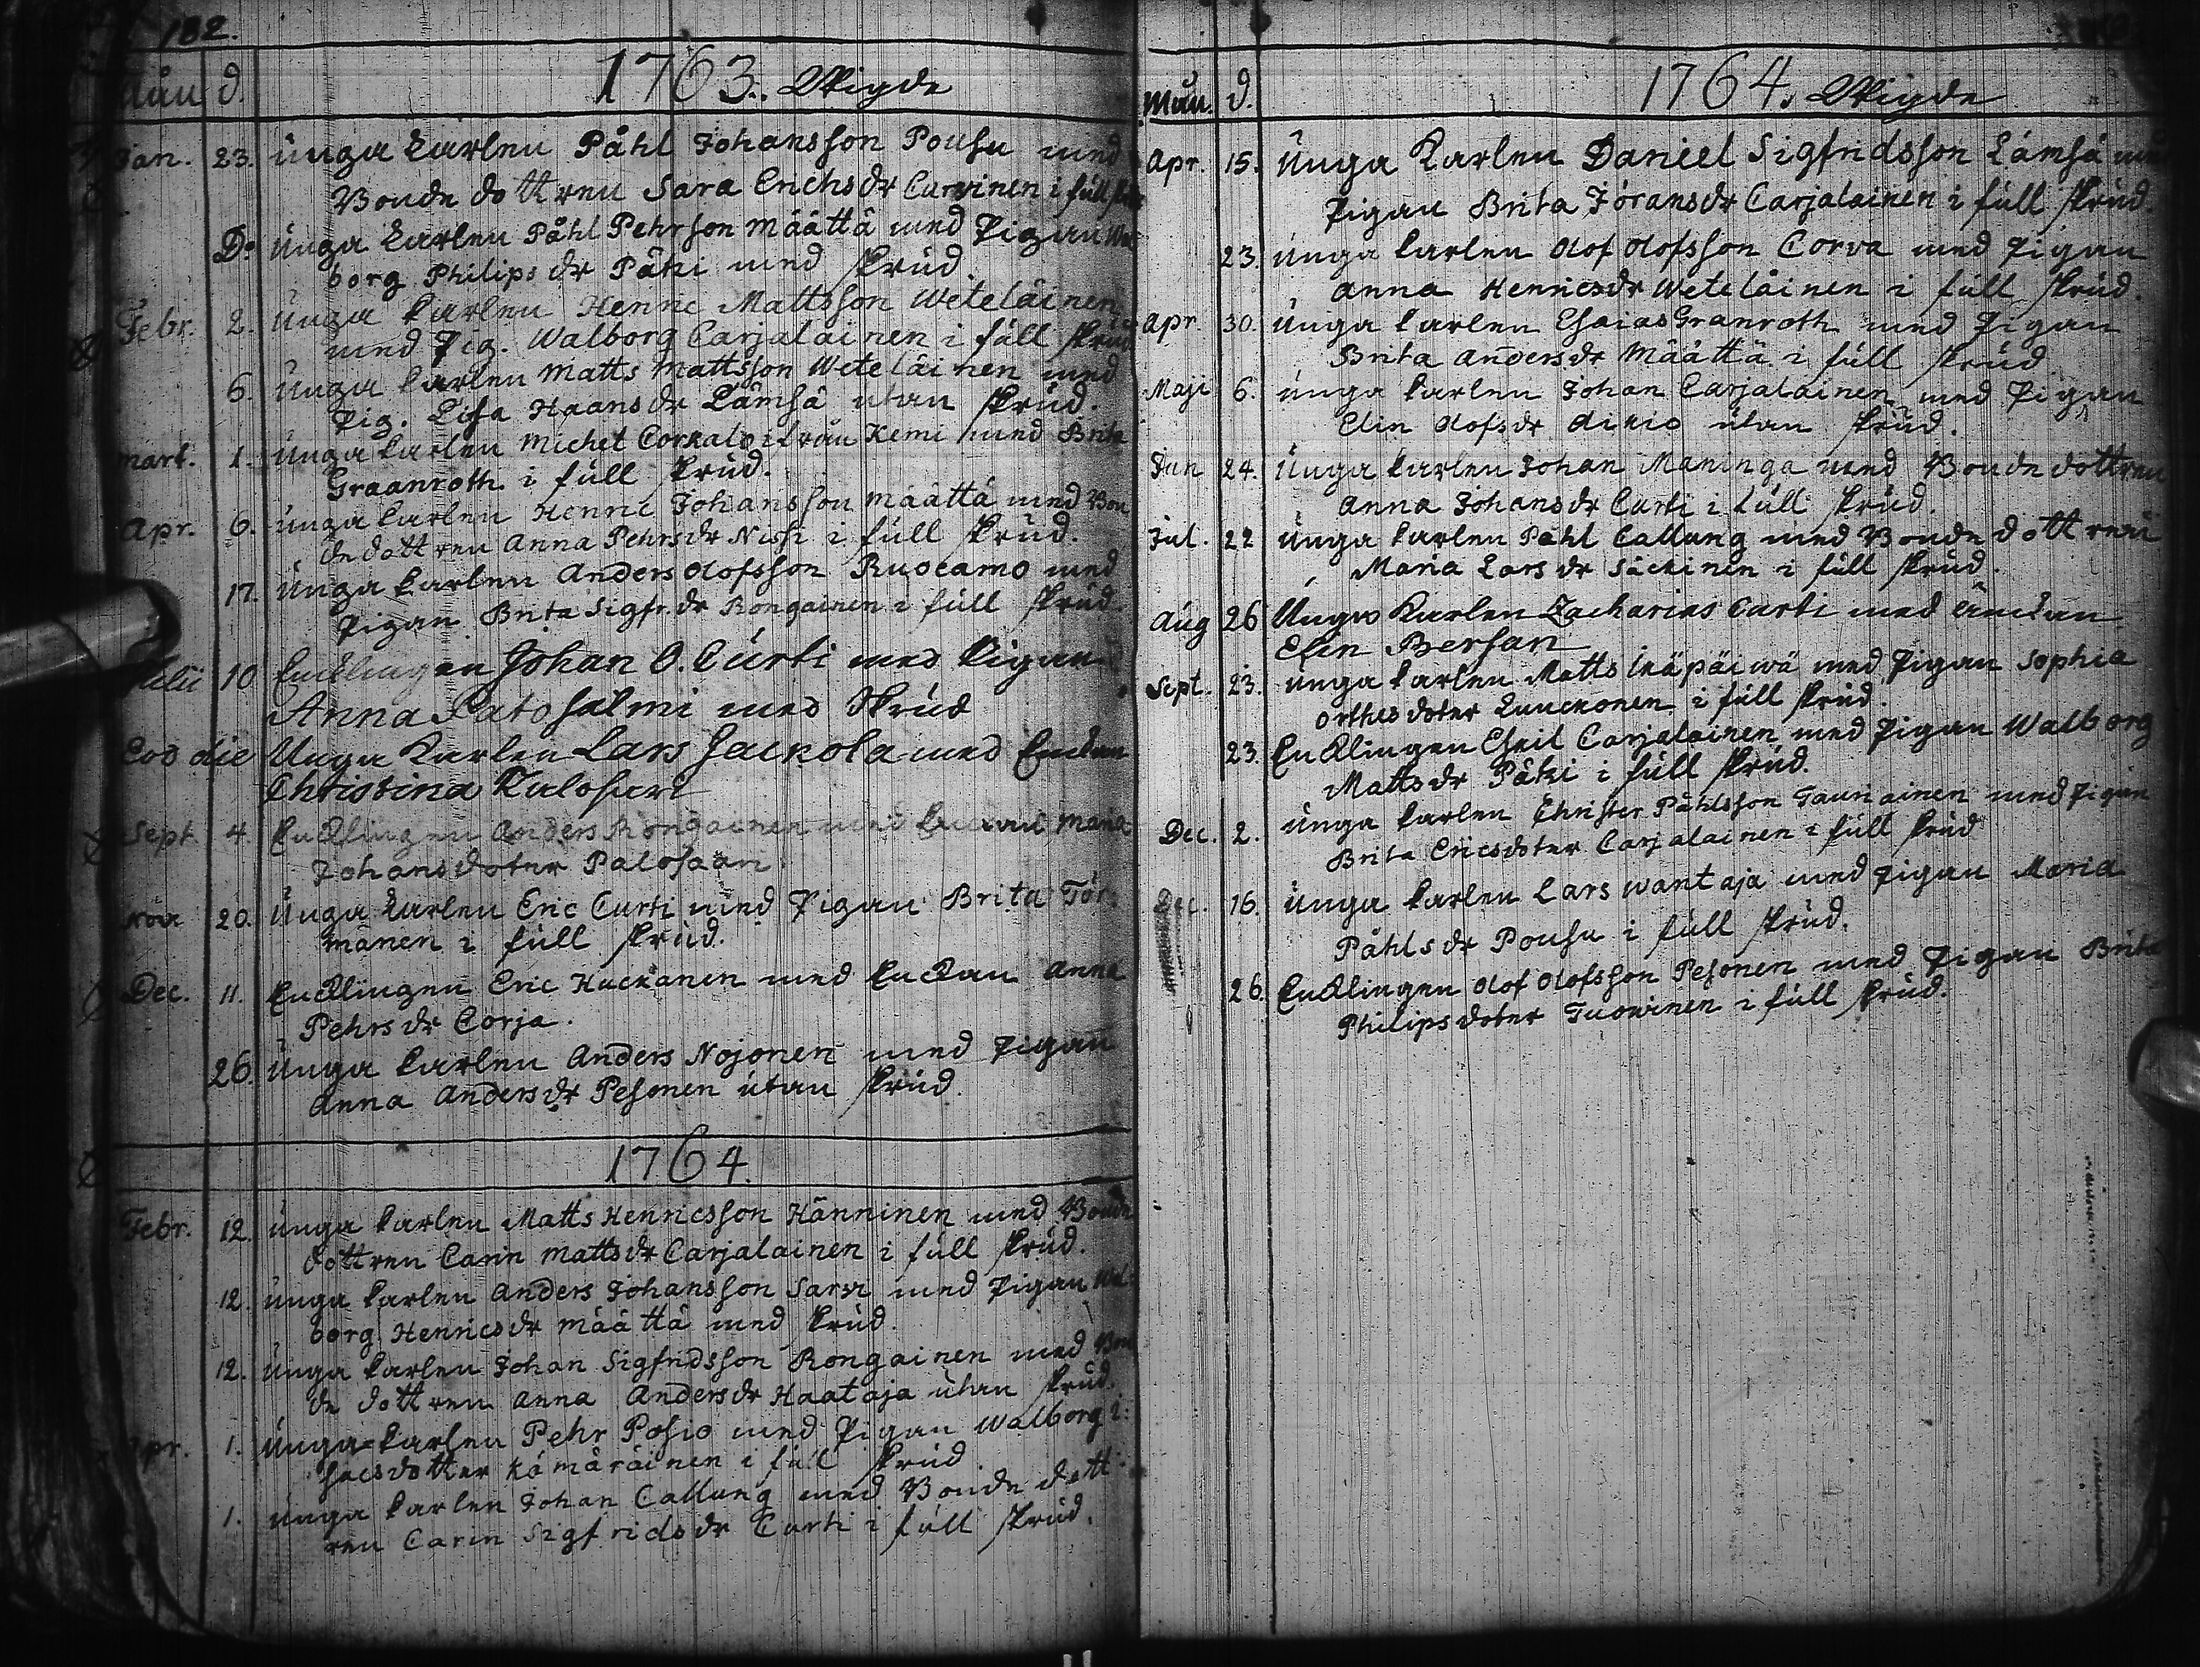 182.
Mån d. 1763. Wigde
Jan. 23. unga Karlen Påhl Johansson Pousu med
Bonde dottren Sara Erichsdr Curvinen i full
Do unga Karlen Påhl Pehrson Määttä med Pigan Wal
borg Philipsdr Pätzi med skrud.
Febr. 2. unga karlen Henric Mattsson Weteläinen
med Pig. Walborg Carjalainen i full skrud
6. unga karlen Matts Mattsson Weteläinen med
Pig. Lisa Haansdr Lämsä utan skrud.
Mart. 1. unga karlen Michel Corkalo ifrån Kemi med Brita
Graanroth i full skrud.
Apr. 6. unga karlen Henric Johansson Määttä med Bon
dedottren Anna Pehrsdr Nissi i full skrud.
17. unga karlen Anders Olofsson Ruocamo med
Pigan Brita Sigfr.dr Rongainen i full skrud.
Julii 10 Encklingen Johan O. Curti med Pigan
Anna Patosalmi med Skrud
Eod die Unga Karlen Lars Jackola med Enckan
Christina Palosari
Sept. 4. Encklingen Anders Rongainen med Enckan Maria
Johansdoter Palosaari
Nov 20. unga karlen Eric Curti med Pigan Brita Tör.
mänen i full skrud.
Dec. 11. Encklingen Eric Huckanen med Enckan Anna
Pehrsdr Corja.
26. unga karlen Anders Nojonen med Pigan
Anna Andersdr Pesonen utan skrud.
1764.
Febr. 12. unga karlen Matts Henricsson Hänninen med Bonde
dottren Carin Mattsdr Carjalainen i full skrud.
12. unga karlen Anders Johansson Sarvi med Pigan Wal
borg Henricsdr Määttä med skrud.
12. unga karlen Johan Sigfridsson Rongainen med Bon
de dottren Anna Andersdr Haataja utan skrud.
Apr. 1. unga karlen Pehr Posio med Pigan Walborg I:
sacsdotter Kämäräinen i full skrud.
1. unga karlen Johan Callung med Bonde dott
ren Carin Sigfridsdr Curti i full skrud.
Mån. d. 1764. Wigde
Apr. 15. unga Karlen Daniel Sigfridsson Lämsä med
Pigan Brita Göransdr Carjalainen i full skrud.
23. unga karlen Olof Olofsson Corva med Pigan
Anna Henricsdr Weteläinen i full skrud.
Apr. 30. unga karlen Esaias Granroth med Pigan
Brita Andersdr Määttä i full skrud
Maji 6. unga karlen Johan Carjalainen med Pigan
Elin Olofsdr Aikio utan skrud.
Jun 24. unga karlen Johan Maninga med Bonde dottren
Anna Johansdr Curti i full skrud.
Jul. 22 unga karlen Påhl Callung med Bonde dottren
Maria Larsdr Säckinen i full skrud.
Aug 26 Unga Karlen Zacharias Curti med änckan
Elin Bersan
Sept. 23. unga karlen Matts Ikäpäiwä med Pigan Sophia
Orthesdoter Luuckonen i full skrud.
23. Encklingen Eskil Carjalainen med Pigan Walborg
Mattsdr Pätzi i full skrud.
Dec. 2. unga karlen Christer Påhlsson Tauriainen med Pigan
Brita Ericsdoter Carjalainen i full skrud
Dec. 16. unga karlen Lars Wantaja med Pigan Maria
Påhlsdr Pousu i full skrud.
26. Encklingen Olof Olofsson Pesonen med Pigan Brita
Philipsdoter Tuovinen i full skrud.